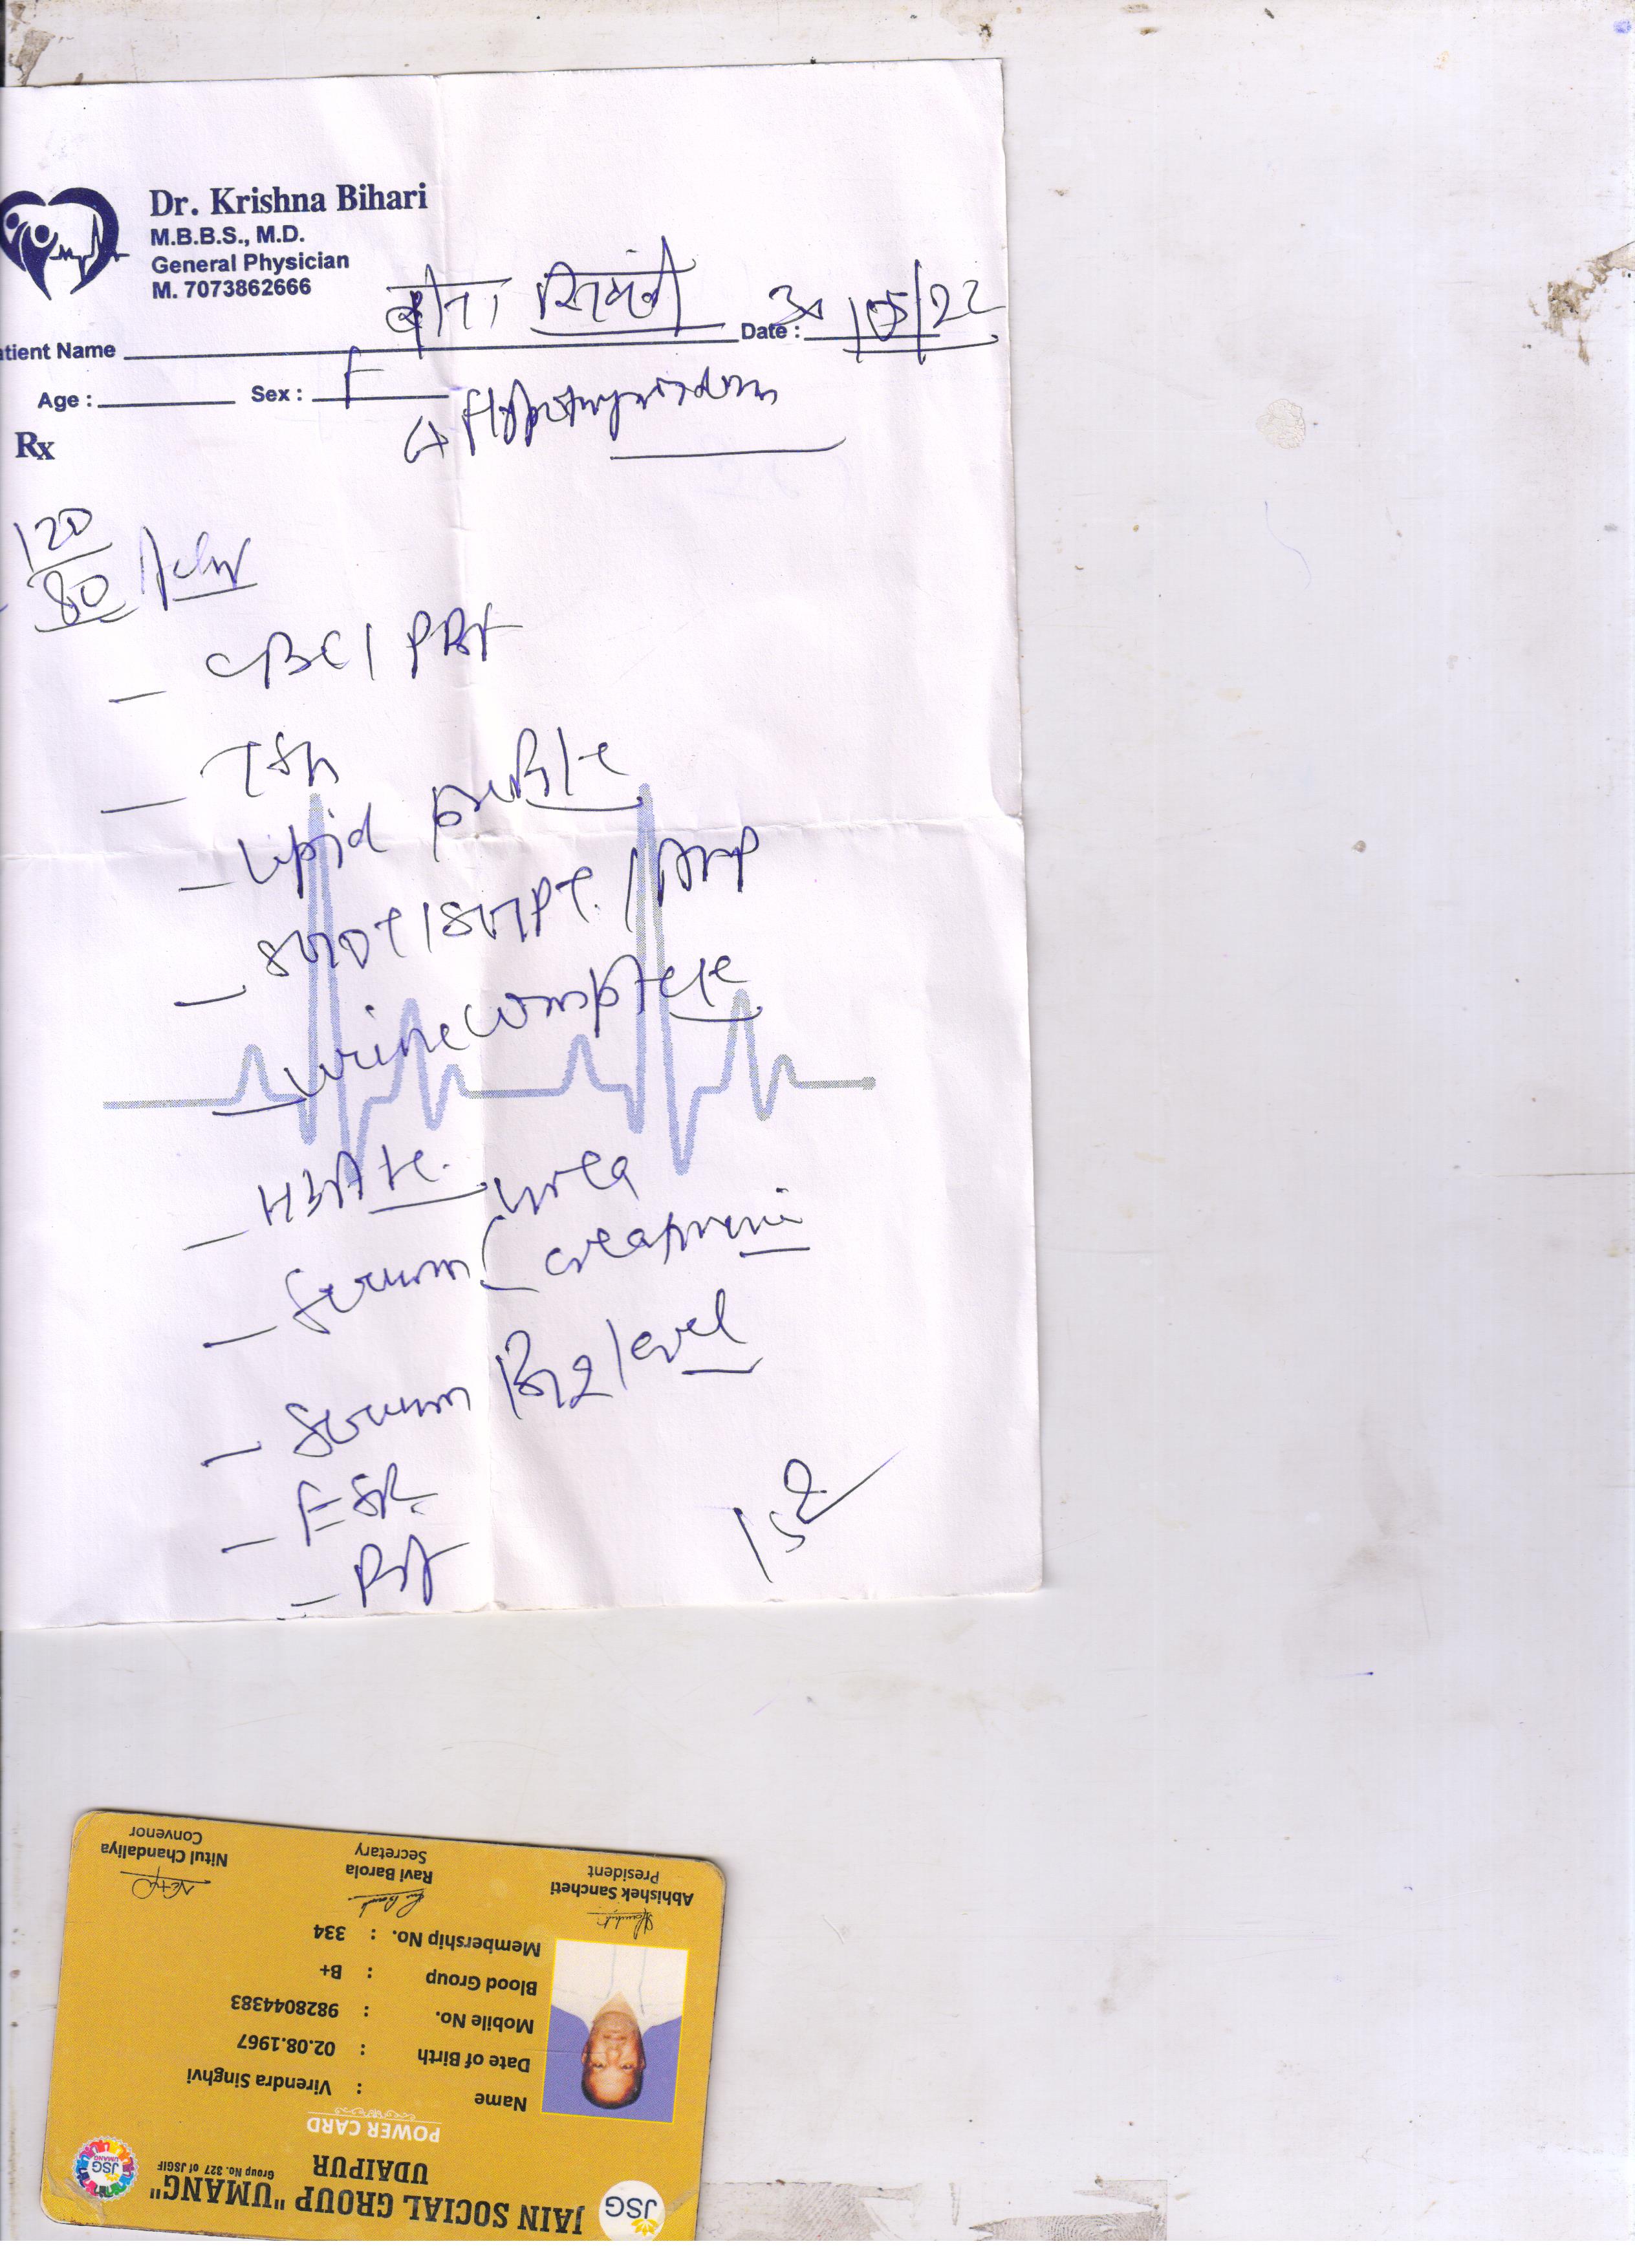 Dr. Krishna Bihari
M.B.B.S., M.D.
General Physician
M. 7073862666
atient Name
Date : 30/05/22
Age : Sex : F
Hypothyroidism
Rx
120/80
- CBC / PBF
- TSH
- Lipid profile
- SGOT / SGPT / ALP
- urine complete
- HBA1C
- Serum urea
creatinine
- Serum B12 level
- ESR
- PBF
JAIN SOCIAL GROUP "UMANG"
UDAIPUR
Group No. 327 of JSGIF
JSG
JSG
UMANG
POWER CARD
Name : Virendra Singhvi
Date of Birth : 02.08.1967
Mobile No. : 9828044383
Blood Group : B+
Membership No. : 334
Abhishek Sancheti
President
Ravi Barola
Secretary
Nitul Chandaliya
Convenor